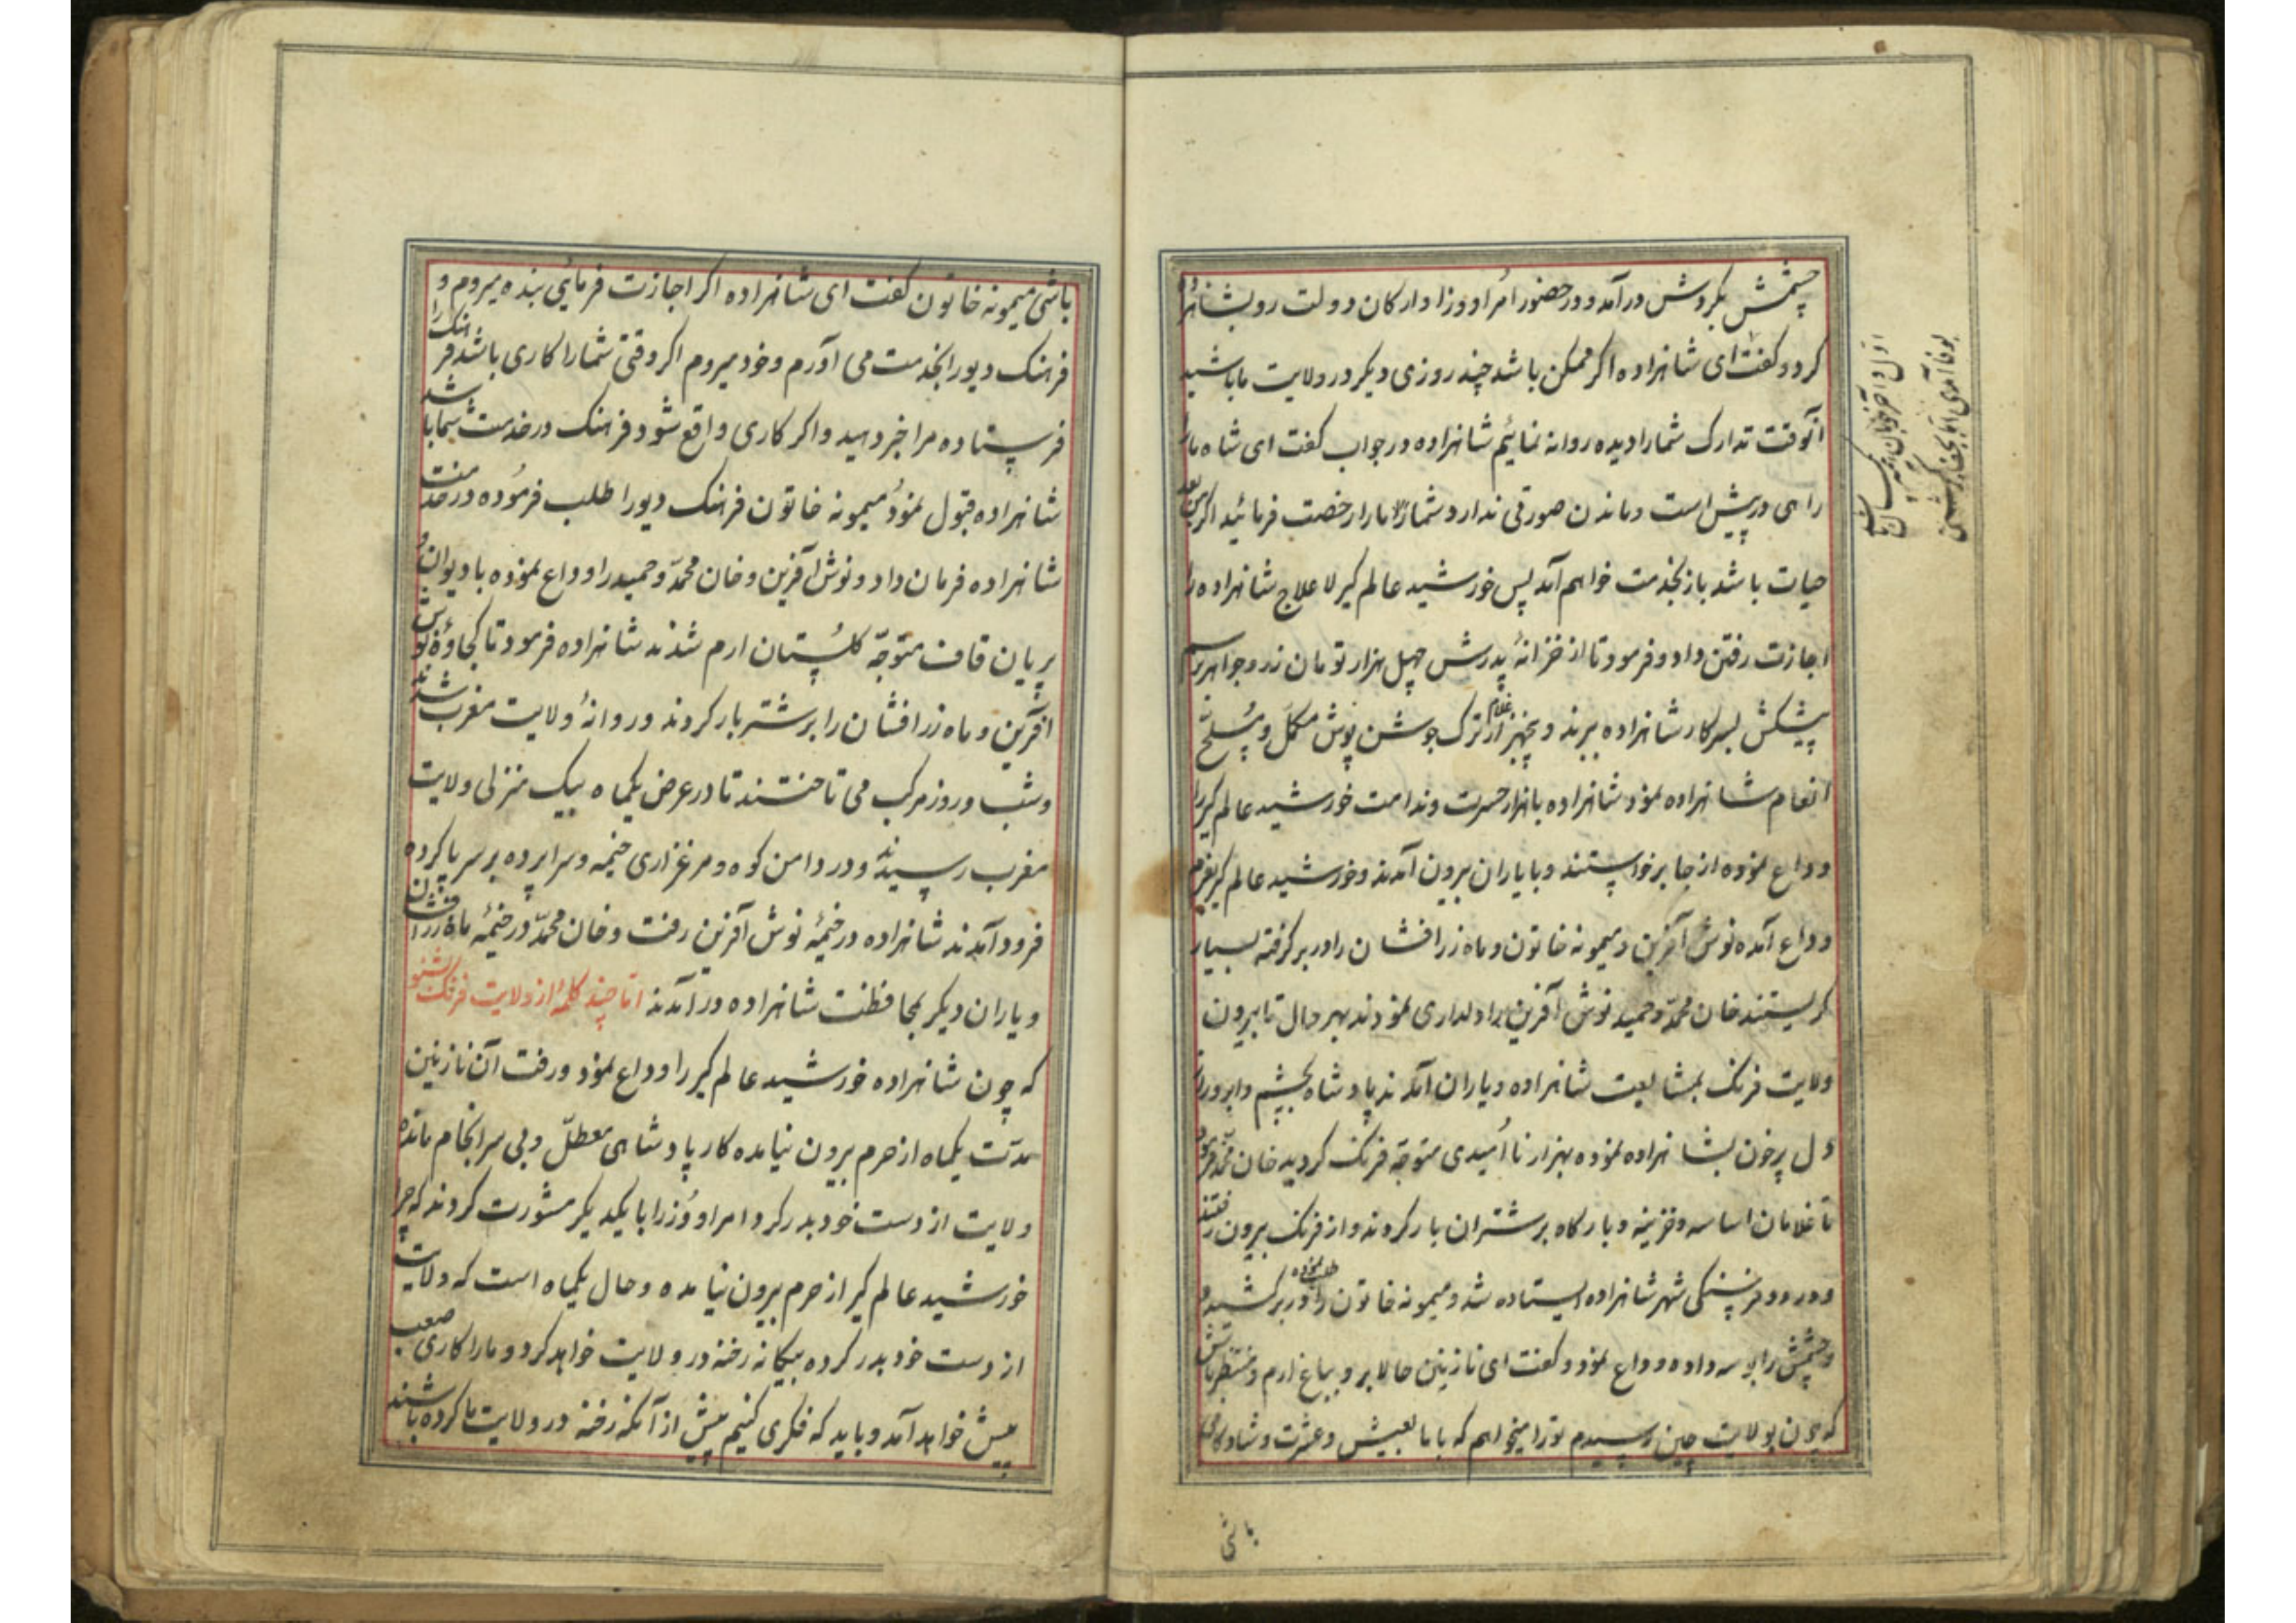 چشمش بگردش درآمد و در حضور امرا و وزرا و ارکان دولت رو بشاهزاده
کرد و کفت ای شاهزاده اکر ممکن باشد چند روزی دیکر در ولایت ما باشید
آنوقت تدارک شما را دیده روانه نمائیم شاهزاده در جواب کفت ای شاه ما را
راهی در پیش است و ماندن صورتی ندارد شما ما را رخصت فرمائید اکر من بعد
حیات باشد باز بخدمت خواهم آمد پس خورشید عالم کیر لاعلاج شاهزاده را
اجازت رفتن داد و فرمود تا از خزانهٔ پدرش چهل هزار تومان زر و جواهر برسم
پیشکش بسرکار شاهزاده ببرند و پنجهزار غلام ترک جوشن پوش مکمل و مسلح
انعام شاهزاده نمود شاهزاده باهزار حسرت و ندامت خورشید عالم کیر را
وداع نموده از جا برخواستند و با یاران بیرون آمدند و خورشید عالم کیر بعزم
وداع آمده نوش آفرین و میمونه خاتون و ماه زرافشان را در بر کرفته بسیار
کریستند خان محمد و حمید نوش آفرین را دلداری نمودند بهر حال تا بیرون
ولایت فرنک بمشایعت شاهزاده و یاران آمدند پادشاه بچشم و ابرو وداع
دل پرخون بشاهزاده نموده بهزار ناامیدی متوجه فرنک کردید خان محمد فرمود
تا غلامان اساسه و خزینه و بارکاه بر شتران بار کردند و از فرنک بیرون رفتند
و در دو فرسنکی شهر شاهزاده ایستاده شد و میمونه خاتون را طلب نموده در بر کشید و
چشمش را بوسه داده وداع نمود و کفت ای نازنین حالا برو بباغ ارم و منتظر باش
که چون بولایت چین رسیدم تو را میخواهم که با ما بعیش و عشرت و شادکامی
باشی
باشی میمونه خاتون کفت ای شاهزاده اکر اجازت فرمائی بنده میروم و
فرهنک دیو را بخدمت می آورم و خود میروم اکر وقتی شما را کاری باشد فرهنک را
فرستاده مرا خبر دهید و اکر کاری واقع شود فرهنک در خدمت شما باشد
شاهزاده قبول نمود میمونه خاتون فرهنک دیو را طلب فرموده در خدمت
شاهزاده فرمان داد و نوش آفرین و خان محمد و حمید را وداع نموده با دیوان و
پریان قاف متوجه کلستان ارم شدند شاهزاده فرمود تا کجاوهٔ نوش
آفرین و ماه زرافشان را بر شتر بار کردند و روانهٔ ولایت مغرب شدند
و شب و روز مرکب می تاختند تا در عرض یکماه بیک منزلی ولایت
مغرب رسیدند و در دامن کوه و مرغزاری خیمه و سراپرده بر سر پا کرده
فرود آمدند شاهزاده در خیمهٔ نوش آفرین رفت و خان محمد در خیمهٔ ماه زرافشان
و یاران دیکر بمحافظت شاهزاده درآمدند اما چند کلمه از ولایت فرنک بشنو
که چون شاهزاده خورشید عالم کیر را وداع نمود و رفت آن نازنین
مدت یکماه از حرم بیرون نیامده کار پادشاهی معطل و بی سرانجام مانده
ولایت از دست خود بدر کرد امرا و وزرا با یکدیکر مشورت کردند که چرا
خورشید عالم کیر از حرم بیرون نیامده و حال یکماه است که ولایت
از دست خود بدر کرده بیکانه رخنه در ولایت خواهد کرد و ما را کاری صعب
پیش خواهد آمد و باید که فکری کنیم پیش از آنکه رخنه در ولایت ما کرده باشند